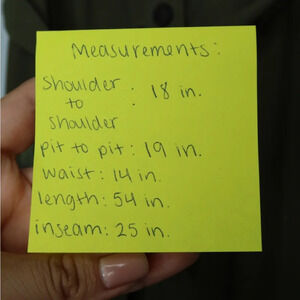 Measurements:
Shoulder : 18 in.
to
Shoulder
pit to pit: 19 in.
waist: 14 in.
length: 54 in.
inseam: 25 in.